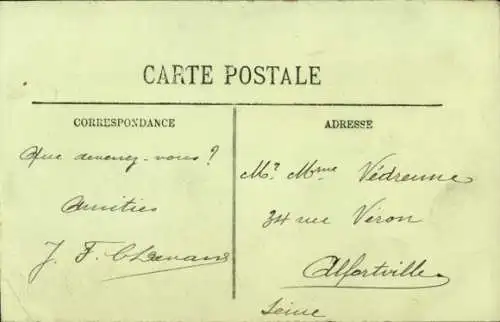 CARTE POSTALE
CORRESPONDANCE
Que devenez-vous ?
Amitiés
J. F.
ADRESSE
Mr Mme Védrenne
34 rue Véron
Alfortville
Seine